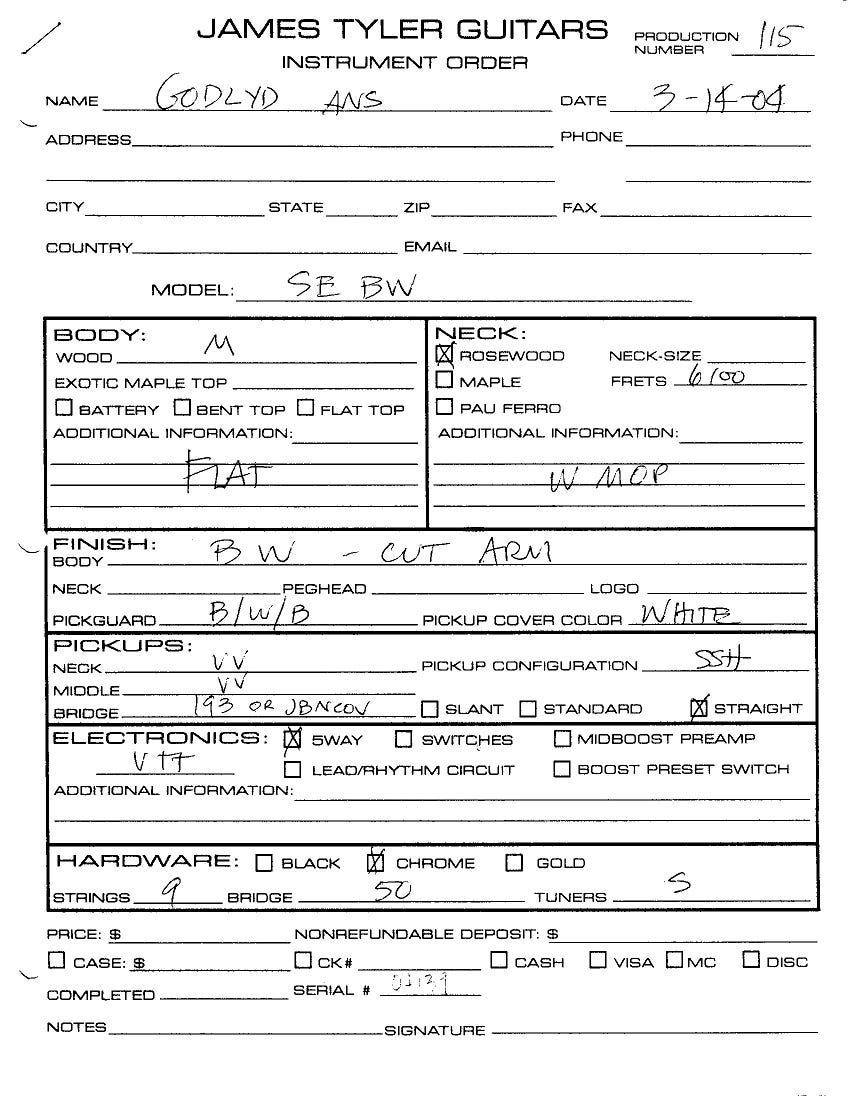 JAMES TYLER GUITARS
INSTRUMENT ORDER
PRODUCTION NUMBER 115
NAME GODLYD ANS DATE 3-14-04
ADDRESS PHONE
CITY STATE ZIP FAX
COUNTRY EMAIL
MODEL: SE BW
BODY: M
WOOD
EXOTIC MAPLE TOP
BATTERY BENT TOP FLAT TOP
ADDITIONAL INFORMATION:
FLAT
NECK:
ROSEWOOD NECK-SIZE
MAPLE FRETS 6100
PAU FERRO
ADDITIONAL INFORMATION:
W MOP
FINISH:
BODY BW - CUT ARM
NECK PEGHEAD LOGO
PICKGUARD B/W/B PICKUP COVER COLOR WHITE
PICKUPS:
NECK VV PICKUP CONFIGURATION SSH
MIDDLE VV
BRIDGE 193 OR JBNCOV SLANT STANDARD STRAIGHT
ELECTRONICS: 5WAY SWITCHES MIDBOOST PREAMP
VTT LEAD/RHYTHM CIRCUIT BOOST PRESET SWITCH
ADDITIONAL INFORMATION:
HARDWARE: BLACK CHROME GOLD
STRINGS 9 BRIDGE 50 TUNERS S
PRICE: $ NONREFUNDABLE DEPOSIT: $
CASE: $ CK# CASH VISA MC DISC
COMPLETED SERIAL #
NOTES SIGNATURE